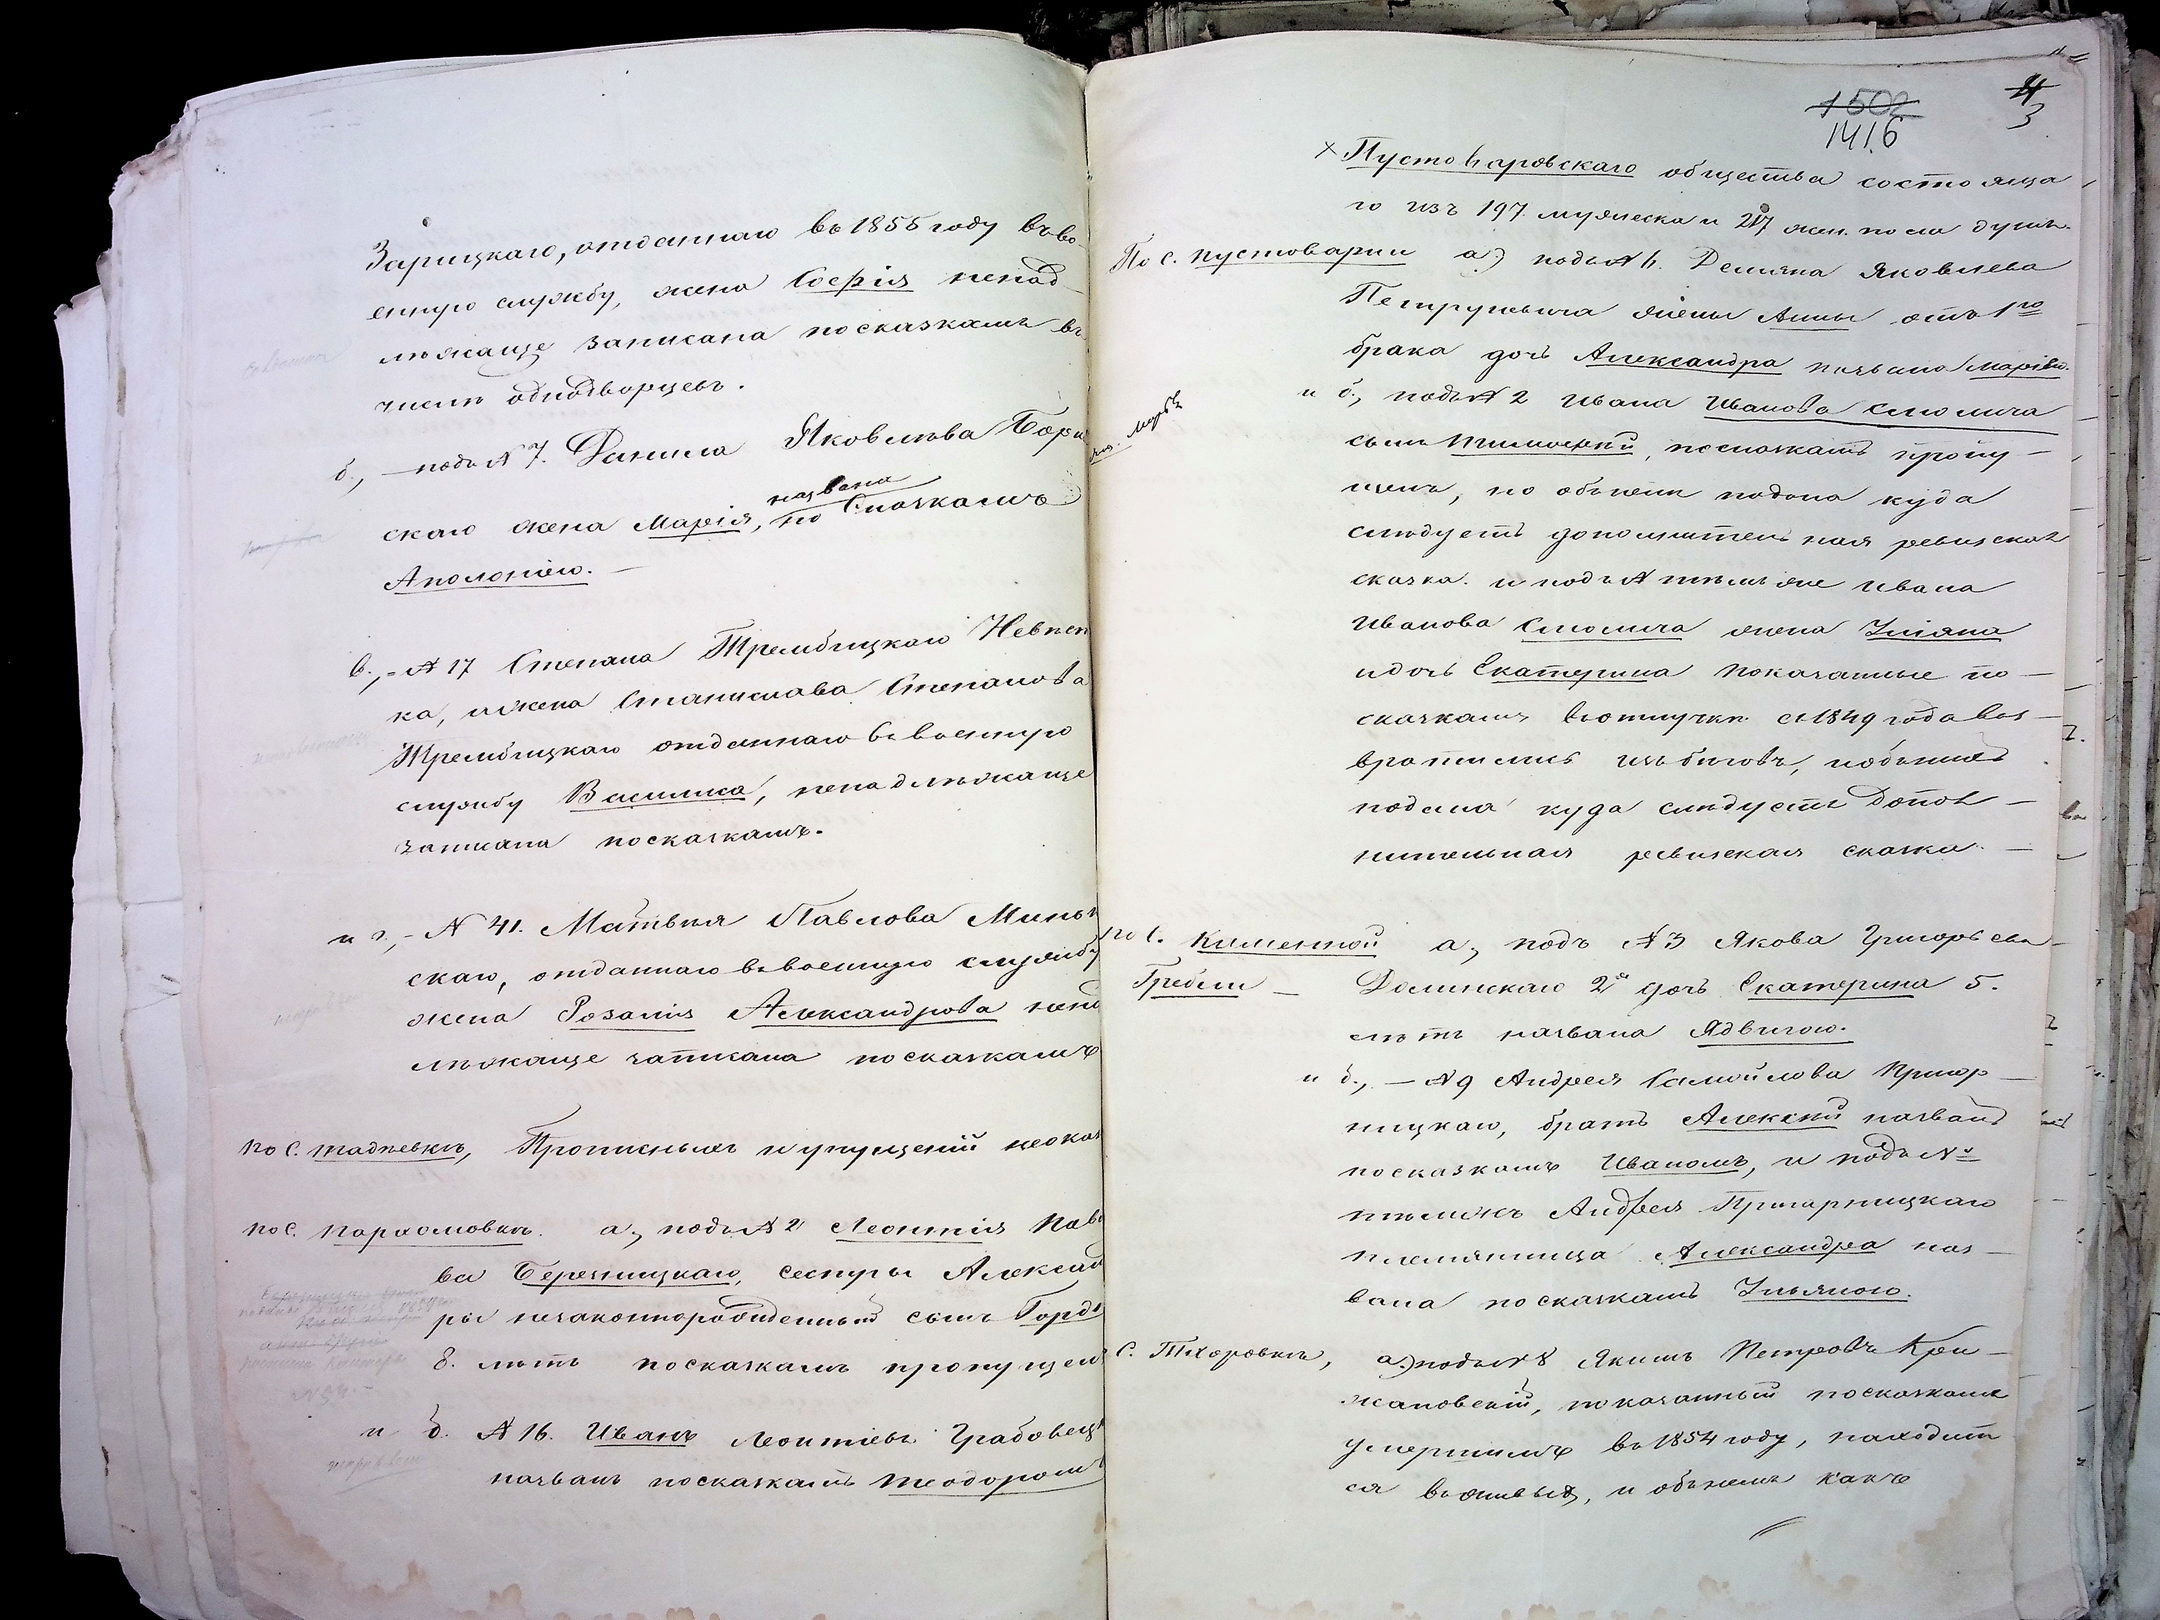 Зарицкаго, отданнаго въ 1855 году въ во-
енную службу, жена Софія ненад-
лѣжаще записана посказкамъ въ
числѣ однодворцевъ.
б., — подъ № 7. Данила Яковлѣва Бори
скаго жена Марія, названа по Сказкамъ
Аполонією. —
в., - № 17 Степана Трембицкаго Невѣст
ка, и жена Станислава Степанова
Трембицкаго отданнаго въ военную
службу Василиса, ненадлѣжаще
записана посказкамъ.
и г., - № 41. Матвѣя Павлова Минь
скаго, отданнаго въ военную службу
жена Розалія Александрова нена
лѣжаще записана посказкамъ
по С. Тадѣевкѣ, Прописныхъ и упущеній неоказ
по С. Пархомовкѣ. а., подъ № 2 Леонтія Павл
ва Березницкаго, сестры Александ
ры незаконнорожденный сынъ Горді
8. лѣтъ посказкамъ пропущенъ
и б. № 16. Иванъ Леонтіевъ Грабовецк
названъ посказкамъ Теодоромъ
1502
1416
4
3
х Пустоваровскаго общества состояща
го изъ 197 мужеска и 217 жен. пола душъ.
По С. Пустоварни а) подъ № Демяна Яковлева
Петрушевича жены Анны отъ 1го
брака дочь Александра названа Маріею.
и б., подъ № 2 Ивана Иванова Смолича
сынъ Тимофей, посказкамъ пропу-
щенъ, но объ немъ подана куда
слѣдуетъ дополнительная ревизская
сказка. и подъ № тѣмъ же Ивана
Иванова Смолича жена Уліяна
и дочь Екатерина показанные по-
сказкамъ въ отлучкѣ съ 1849 года воз-
вратились изъ бѣговъ, и объ нихъ
подана куда слѣдуетъ допол-
нительная ревизская сказка. —
по С. Каменной а, подъ № 3 Якова Григорьева
Гребли — Долинскаго 2я дочь Екатерина 5.
лѣтъ названа Ядвигою.
и б., — № 9 Андрея Самойлова Пригор-
ницкаго, братъ Алексѣй названъ
посказкамъ Иваномъ, и подъ №
тѣмъ же Андрея Пригарницкаго
племянница Александра наз-
вана посказкамъ Ульяною.
С. Тхоровкѣ, а) подъ № 8 Якимъ Петровъ Кри-
жановскій, показанный посказкамъ
умершимъ въ 1854 году, находит
ся въ живыхъ, и объ немъ какъ